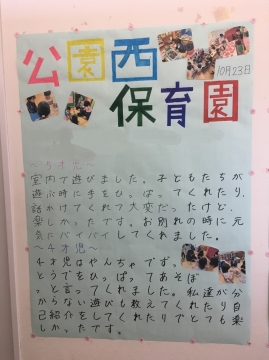 公園西
保育園
10月23日
〜5才児〜
室内で遊びました。子どもたちが
遊ぶ時に手をひっぱってくれたり、
話かけてくれて大変だったけど、
楽しかったです。お別れの時に元
気にバイバイしてくれました。
〜4才児〜
4才児はやんちゃです。
とうでをひっぱってあそぼ
っと言ってくれました。私達が分
からない遊びも教えてくれたり自
己紹介をしてくれたりでとても楽
しかったです。